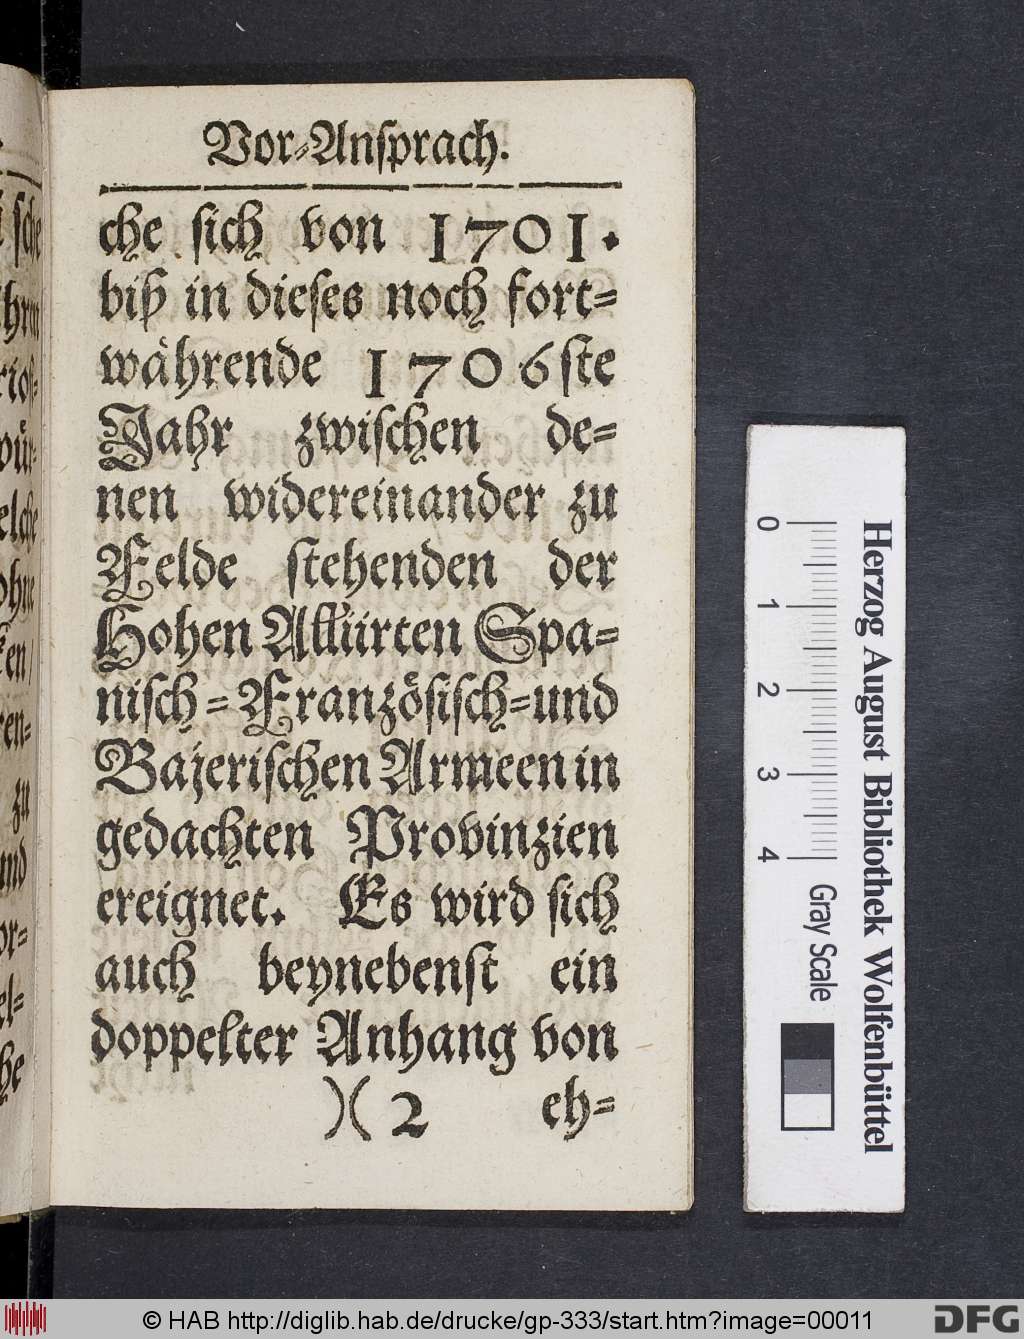 Vor-Anſprach.
che ſich von 1701.
biß in dieſes noch fort-
währende 1706ſte
Jahr zwiſchen de-
nen widereinander zu
Felde ſtehenden der
Hohen Alliirten Spa-
niſch-Franzöſiſch-und
Bajeriſchen Armeen in
gedachten Provinzien
ereignet. Es wird ſich
auch beynebenſt ein
doppelter Anhang von
)( 2 eh-
Herzog August Bibliothek Wolfenbüttel
0 1 2 3 4 Gray Scale
© HAB http://diglib.hab.de/drucke/gp-333/start.htm?image=00011
DFG